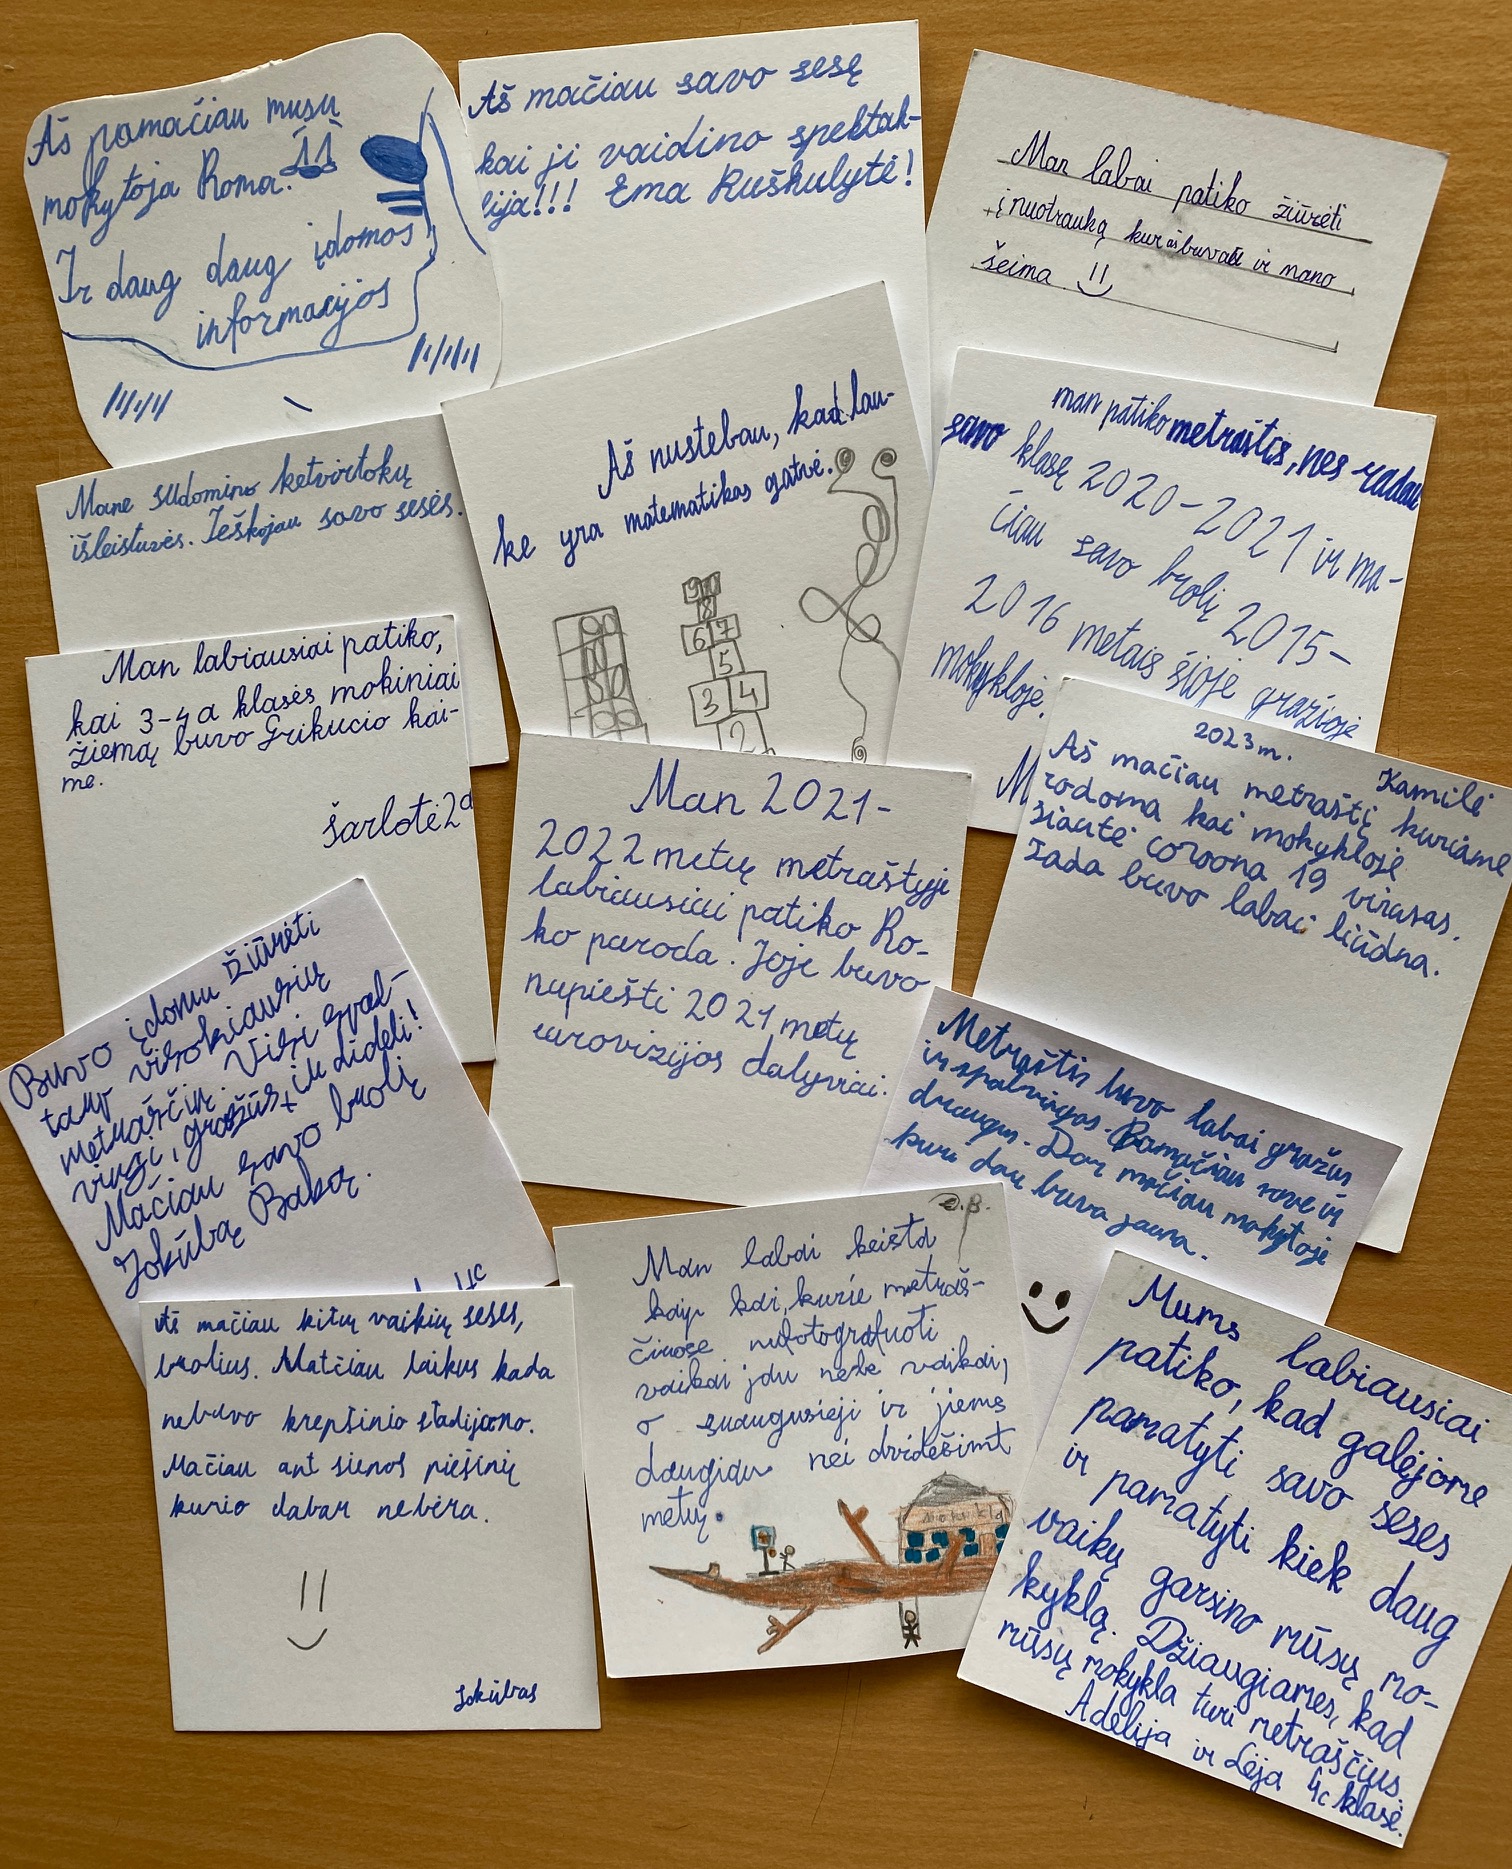 Aš pamačiau musų
mokytoja Roma.
Ir daug daug įdomos
informacijos
Aš mačiau savo sesę
kai ji vaidino spektak-
lija!!! Ema Ruškulytė!
Man labai patiko žiūrėti
į nuotrauką kur aš buvau ir mano
šeima
Mane sudomino ketvirtokų
išleistuvės. Ieškojau savo sesės.
Aš nustebau, kad lau-
ke yra matematikos gatvė.
9 10
8
6 7
5
3 4
2
man patiko metraštis, nes radau
savo klasę 2020-2021 ir ma-
čiau savo brolį 2015-
2016 metais šioje gražioje
mokykloje.
M
Man labiausiai patiko,
kai 3-4a klasės mokiniai
žiemą buvo Grikucio kai-
me.
šarlotė 2a
Man 2021-
2022 metų metraštyje
labiausiai patiko Ro-
ko paroda. Joje buvo
nupiešti 2021 metų
eurovizijos dalyviai.
2023m.
Kamilė
Aš mačiau metraštį kuriame
rodoma kai mokykloje
siautė coroona 19 virusas.
Tada buvo labai liūdna.
Buvo įdomu žiūrėti
tarp visokiausių
metraščių. Visi spal-
vingi, gražūs, ir dideli!
Mačiau savo brolį
Jokūbą Babą.
4c
Metraštis buvo labai gražus
ir spalvingas. Pamačiau save ir
draugus. Dar mačiau mokytoje
kuri dar buva jauna.
Aš mačiau kitų vaikių seses,
brolius. Matčiau laikus kada
nebuvo krepšinio stadijono.
Mačiau ant sienos piešinių
kurio dabar nebėra.
Jokūbas
D.B.
Man labai keista
kaip kai, kurie metraš-
čiuose nufotografuoti
vaikai jau nebe vaikai,
o suaugusieji ir jiems
daugiau nei dvidešimt
metų.
Mokykla
Mums labiausiai
patiko, kad galėjome
pamatyti savo seses
ir pamatyti kiek daug
vaikų garsino mūsų mo-
kyklą. Džiaugiamės, kad
mūsų mokykla turi metraščius.
Adelija ir Lėja 4c klasė.